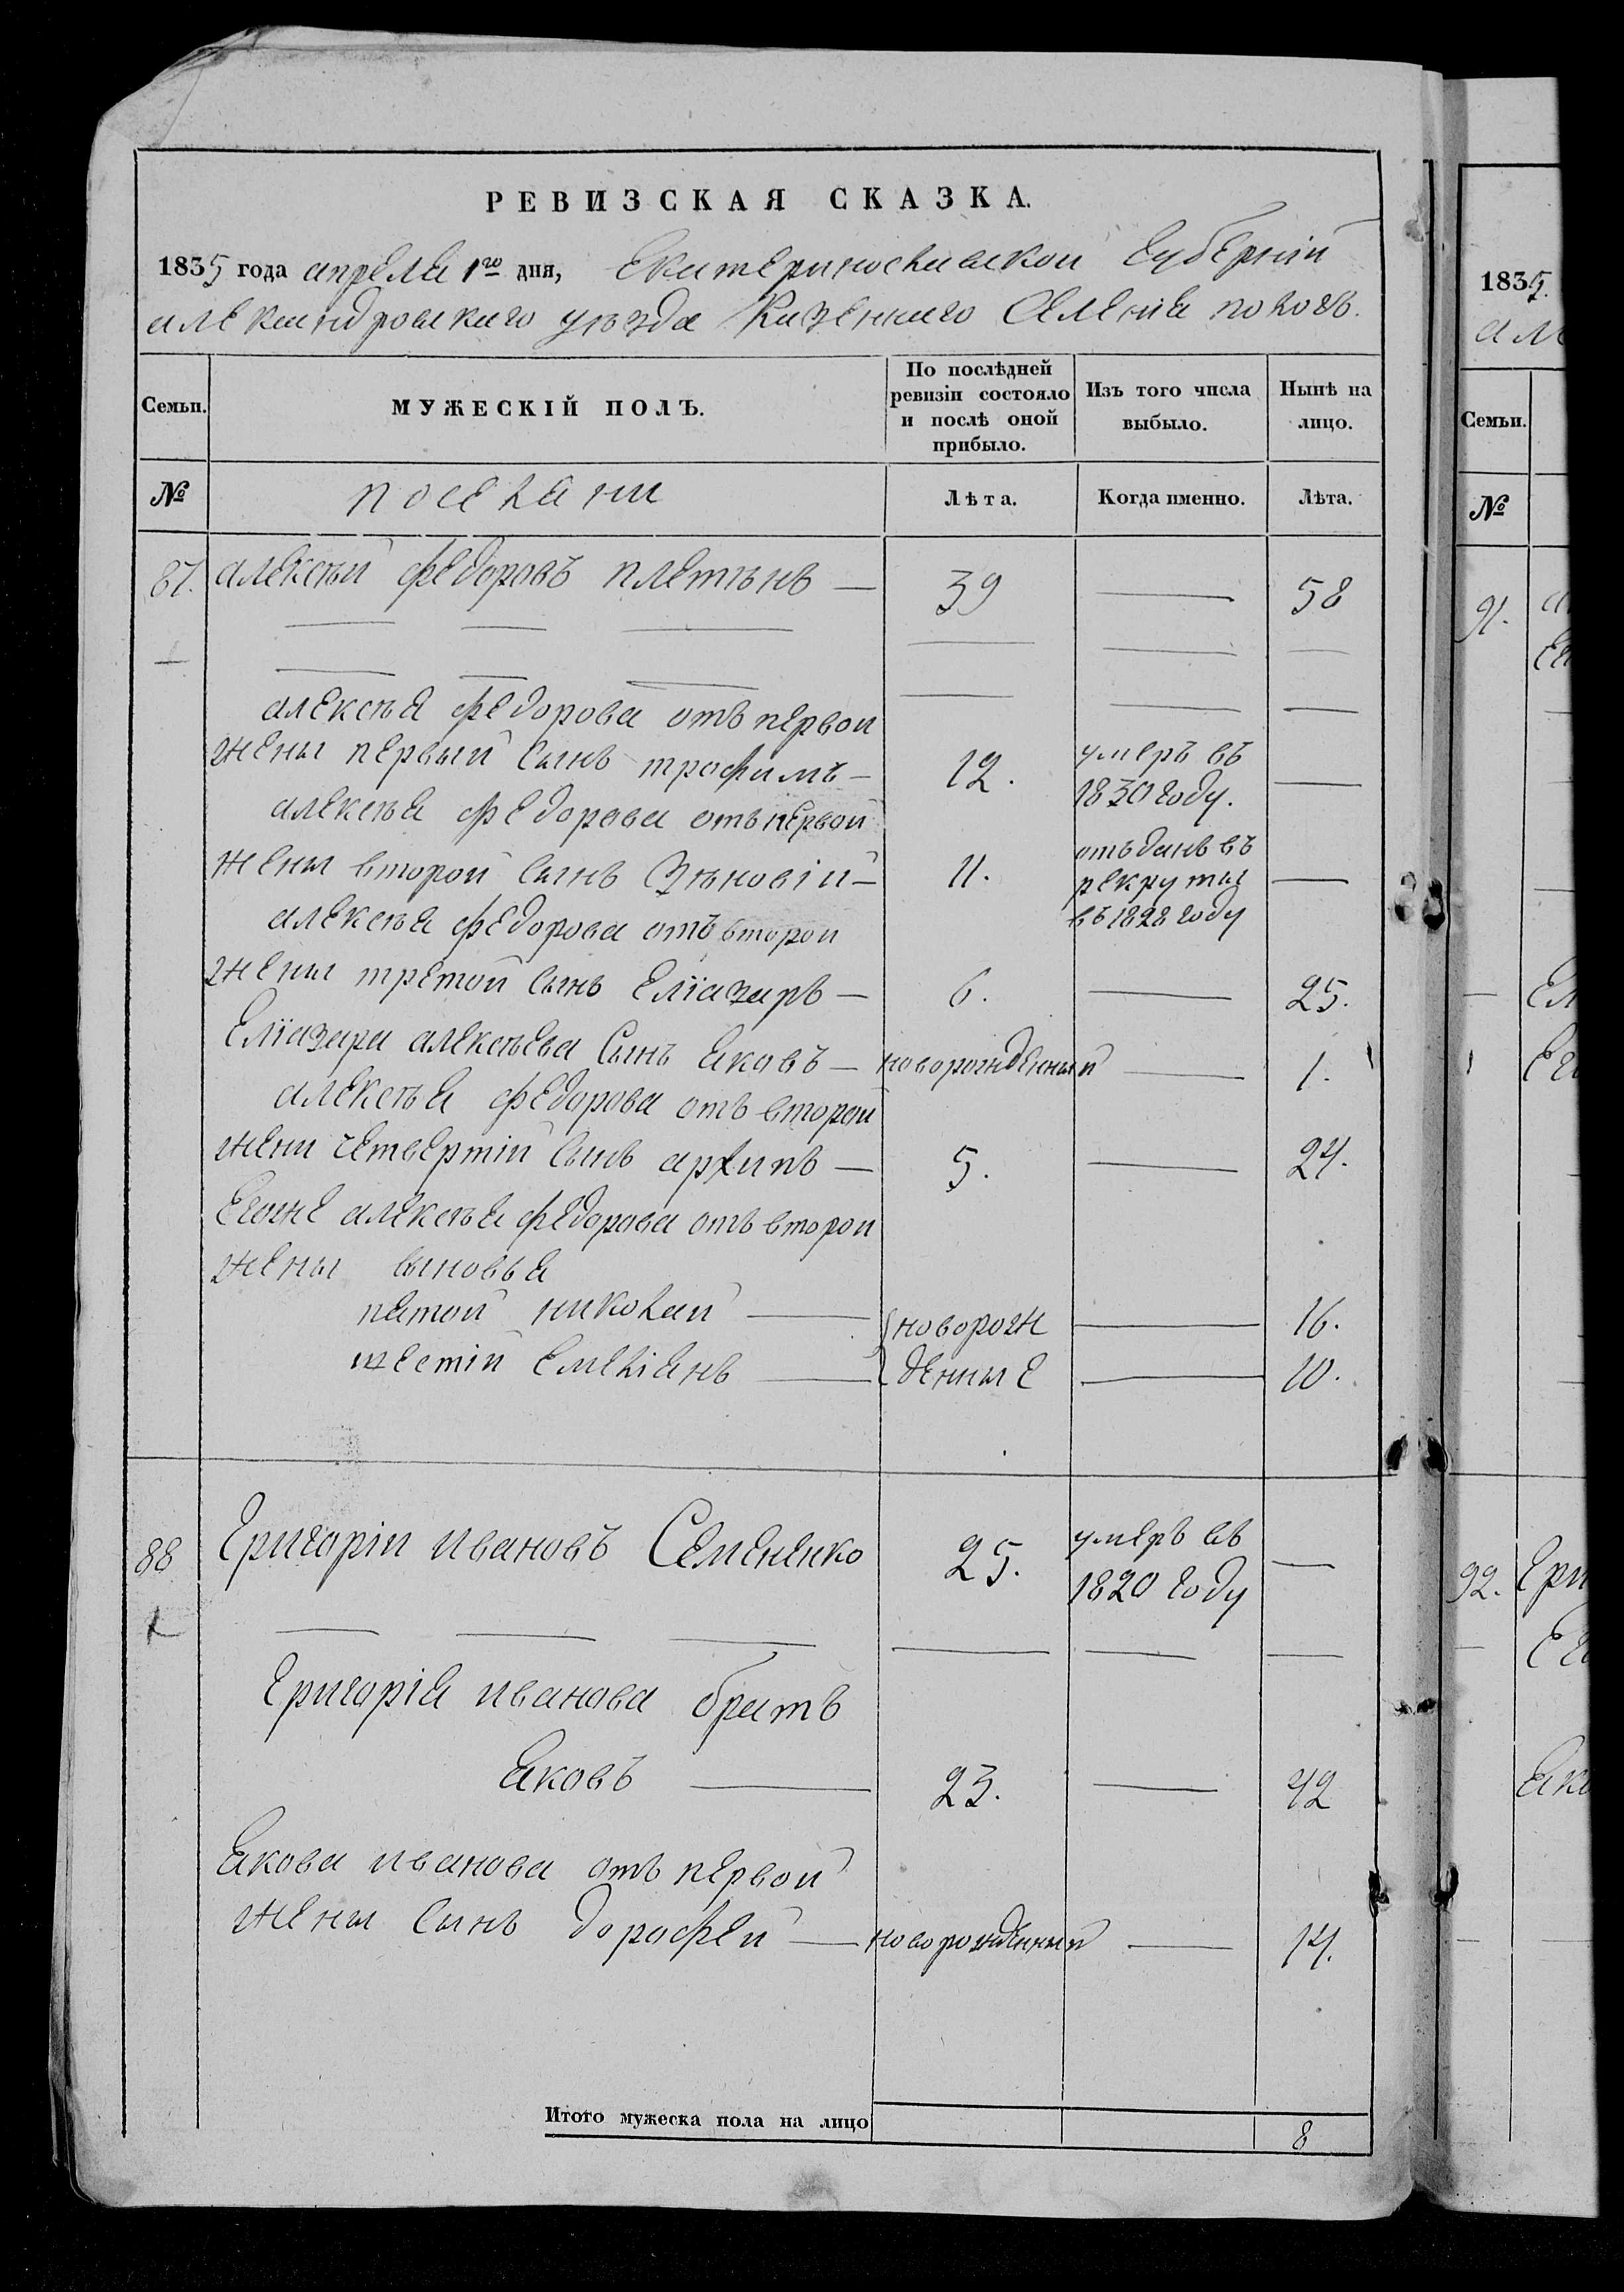 РЕВИЗСКАЯ СКАЗКА.
1835 года апреля 1го дня, Екатериносла­вской Губерніи
александровскаго уѣзда Казеннаго Селенія пологъ.
Семьи. МУЖЕСКІЙ ПОЛЪ. По послѣдней ревизіи состояло и послѣ оной прибыло. Изъ того числа выбыло. Нынѣ на лицо.
№ поселяни Лѣта. Когда именно. Лѣта.
87. алексѣй федоровъ плетѣнь — 39 — 58
алексѣя федорова отъ первой
жены первый сынъ трофимъ — 12. умеръ въ 1830 году. —
алексѣя федорова отъ первой
жены второй сынъ Зѣновій — 11. отъданъ въ рекруты въ 1828 году —
алексѣя федорова отъ второй
жены третой сынъ Еліазаръ — 6. — 25.
Еліазара алексѣева Сынъ Яковъ — новорожденный — 1.
алексѣя федорова отъ второй
жени четвертій сынъ архипъ — 5. — 24.
Егоже алексѣя федорова отъ второй
жены сыновья
пятой николай — новорож — 16.
шестій Емеліянъ — денные — 10.
88 Григоріи ивановъ Семененко 25. умеръ въ 1820 году —
Григорія иванова братъ
Яковъ — 23. — 42
Якова иванова отъ первой
жены сынъ дорофей — новорожденный — 14.
Итого мужеска пола на лицо 8
1835.
ал
Семьи.
№
91.
92. Гри
Яко